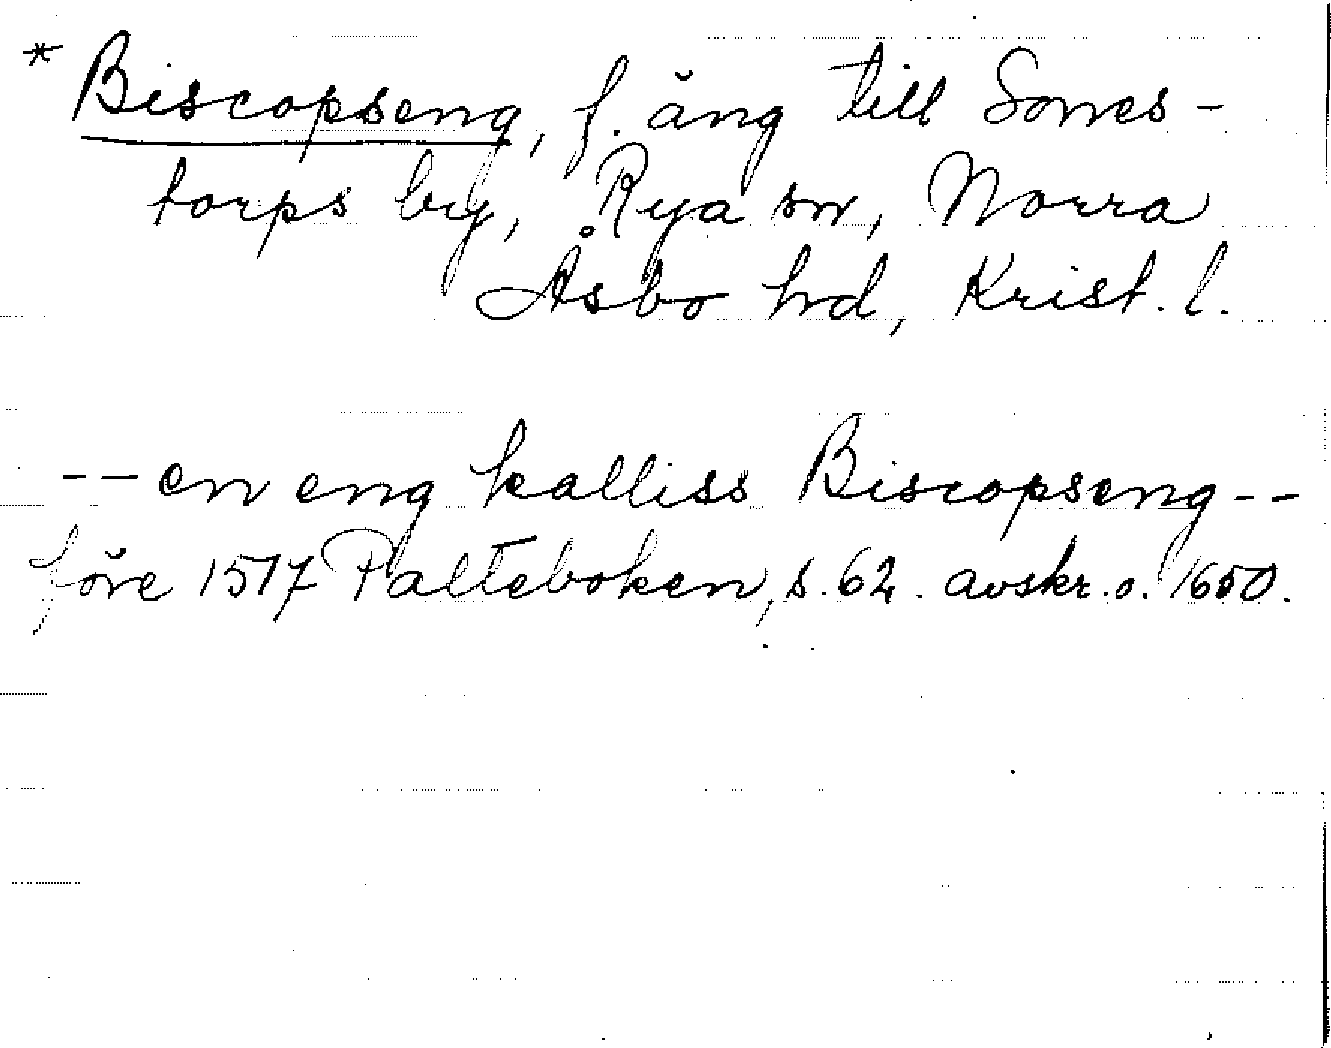 * Biscopseng, f. äng till Sones-
torps by, Rya sn, Norra
Åsbo hd, Krist. l.
-- en eng kalliss Biscopseng --
före 1517 Palteboken, s. 62. avskr. o. 1650.